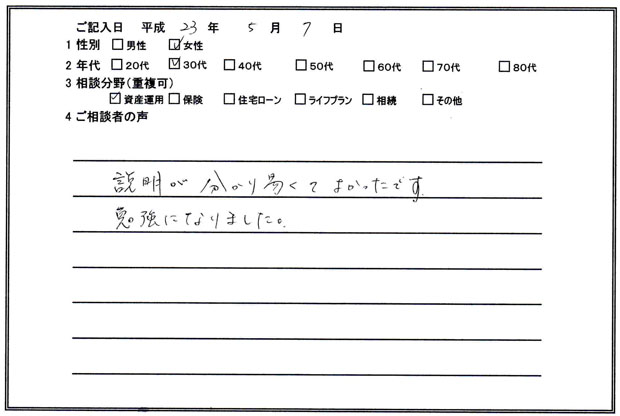 ご記入日 平成 23 年 5 月 7 日
1 性別 □男性 ☑女性
2 年代 □20代 ☑30代 □40代 □50代 □60代 □70代 □80代
3 相談分野(重複可)
☑資産運用 □保険 □住宅ローン □ライフプラン □相続 □その他
4 ご相談者の声
説明が分かり易くてよかったです。
勉強になりました。